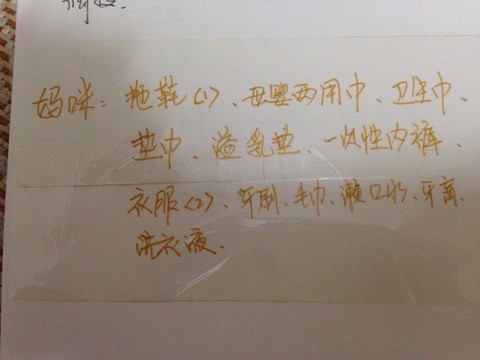 妈咪：拖鞋(1)、母婴两用巾、卫生巾、
垫巾、溢乳垫、一次性内裤、
衣服(2)、牙刷、毛巾、漱口水、牙膏、
洗衣液.